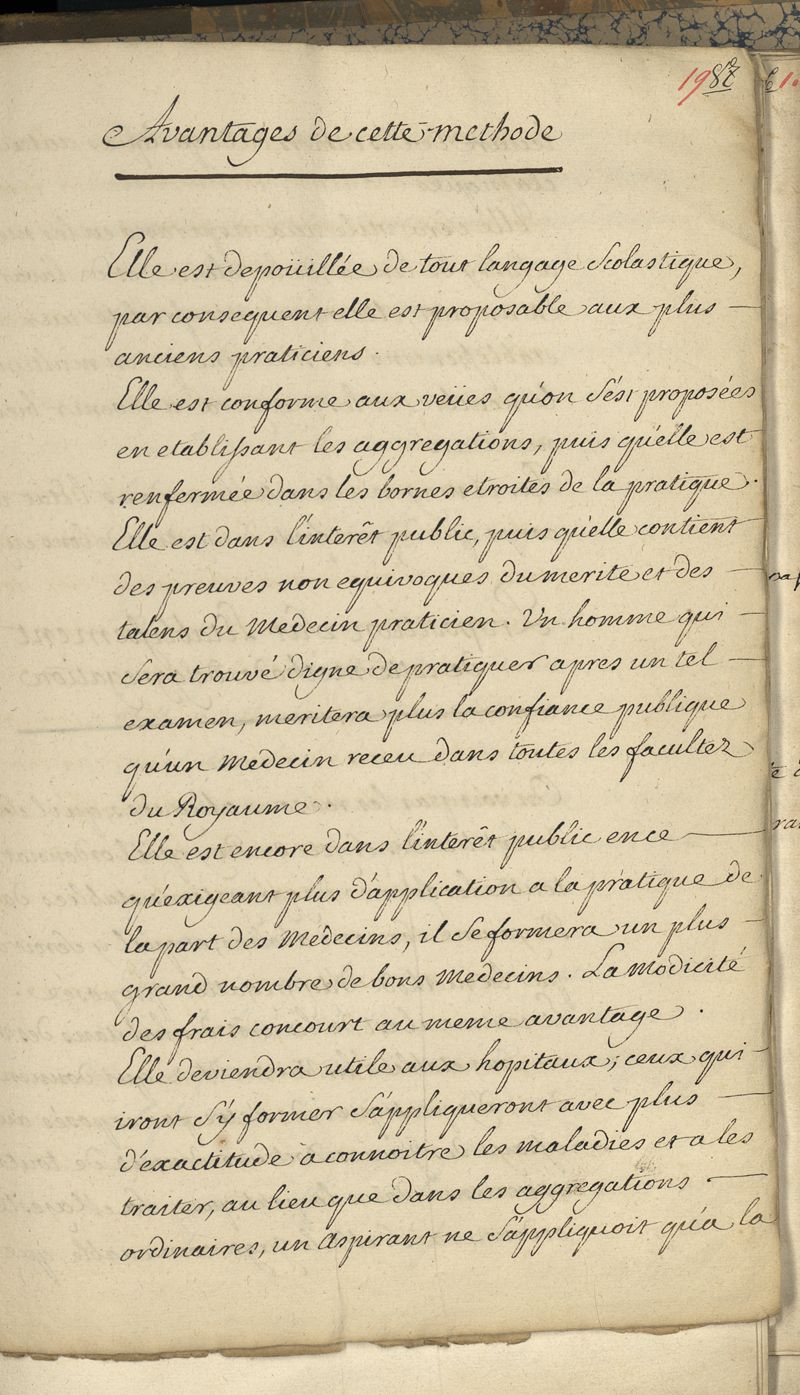 Avantages de cette methode
Elle est depoüillée de tout langage scolastique,
par consequent elle est proposable aux plus
anciens praticiens.
Elle est conforme aux veües qu'on s'ést proposées
en etablissant les aggregations, puis qu'elle est
renfermée dans les bornes etroites de la pratique.
Elle est dans l'interêt public, puis qu'elle contient
des preuves non equivoques du merite et des
talens du Medecin praticien. Un homme qui
sera trouvé digne de pratiquer apres un tel
examen, meritera plus la confiance publique
qu'un Medecin receu dans toutes les facultez
du Royaume.
Elle est encore dans l'interêt public ence
qu'exigeant plus d'application a la pratique de
la part des Medecins, il se formera un plus
grand nombre de bons Medecins. La modicité
des frais concourt au meme avantage.
Elle deviendra utile aux hopitaux; ceux qui
iront s'y former s'appliqueront avec plus
d'exactitude a connoitre les maladies et a les
traiter, au lieu que dans les aggregations
ordinaires, un aspirant ne s'appliquoit qu'a la